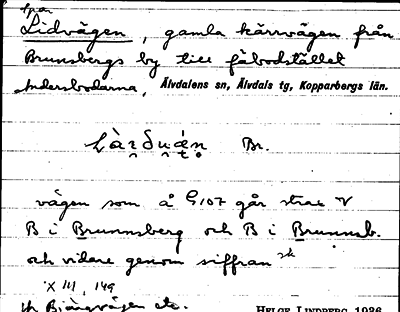 Lidvägen, gamla kärrvägen från
Brunnsbergs by till fäbodstället
Andersbodarna, Älvdalens sn, Älvdals tg, Kopparbergs län.
Br.
vägen som å G107 går strax V
B i Brunnsberg och B i Brunnsb.
och vidare genom siffran
X III, 149
Bjängvägen etc. HELGE LINDBERG 1936